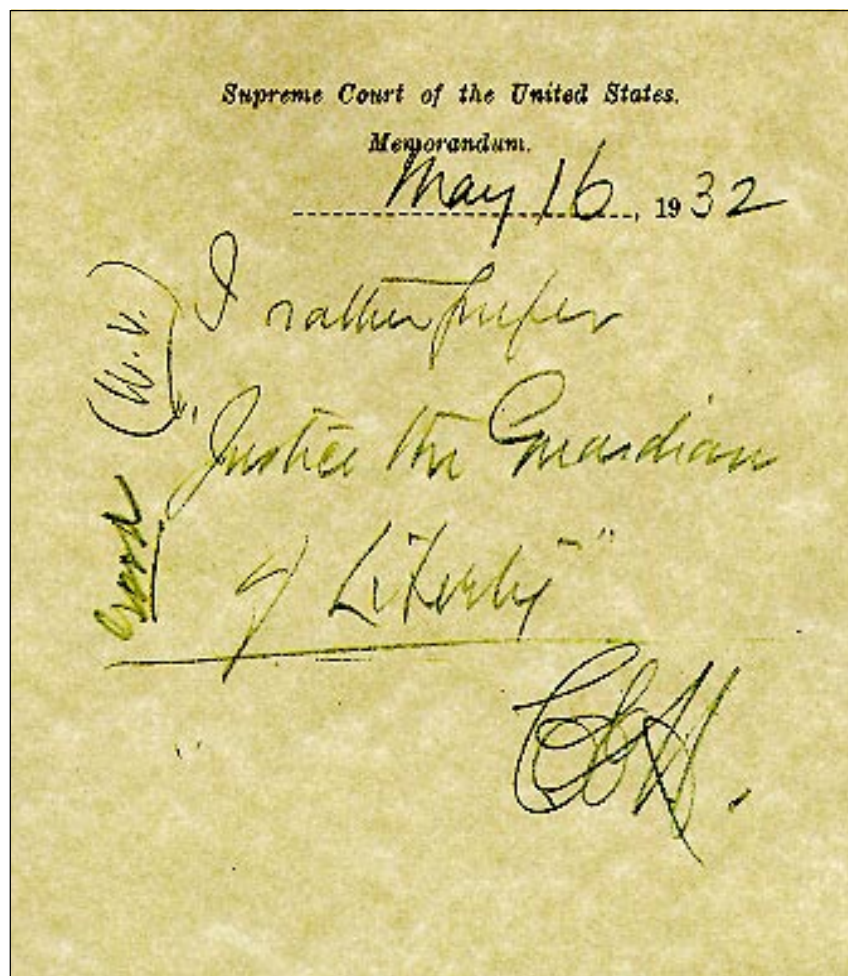 Supreme Court of the United States.
Memorandum.
May 16, 1932
I rather prefer
"Justice the Guardian
of Liberty"
C.E.H.
Good (W.V.)